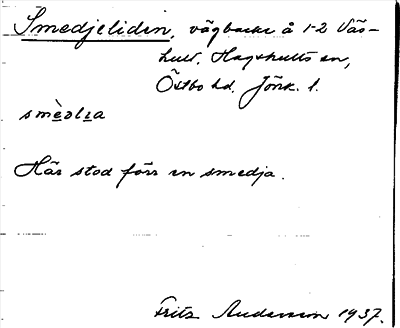 Smedjeliden, vägbacke å 1-2 Väs-
hult, Hagshults sn,
Östbo hd, Jönk. l.
smèdlıa
Här stod förr en smedja.
Fritz Andersson 1937.